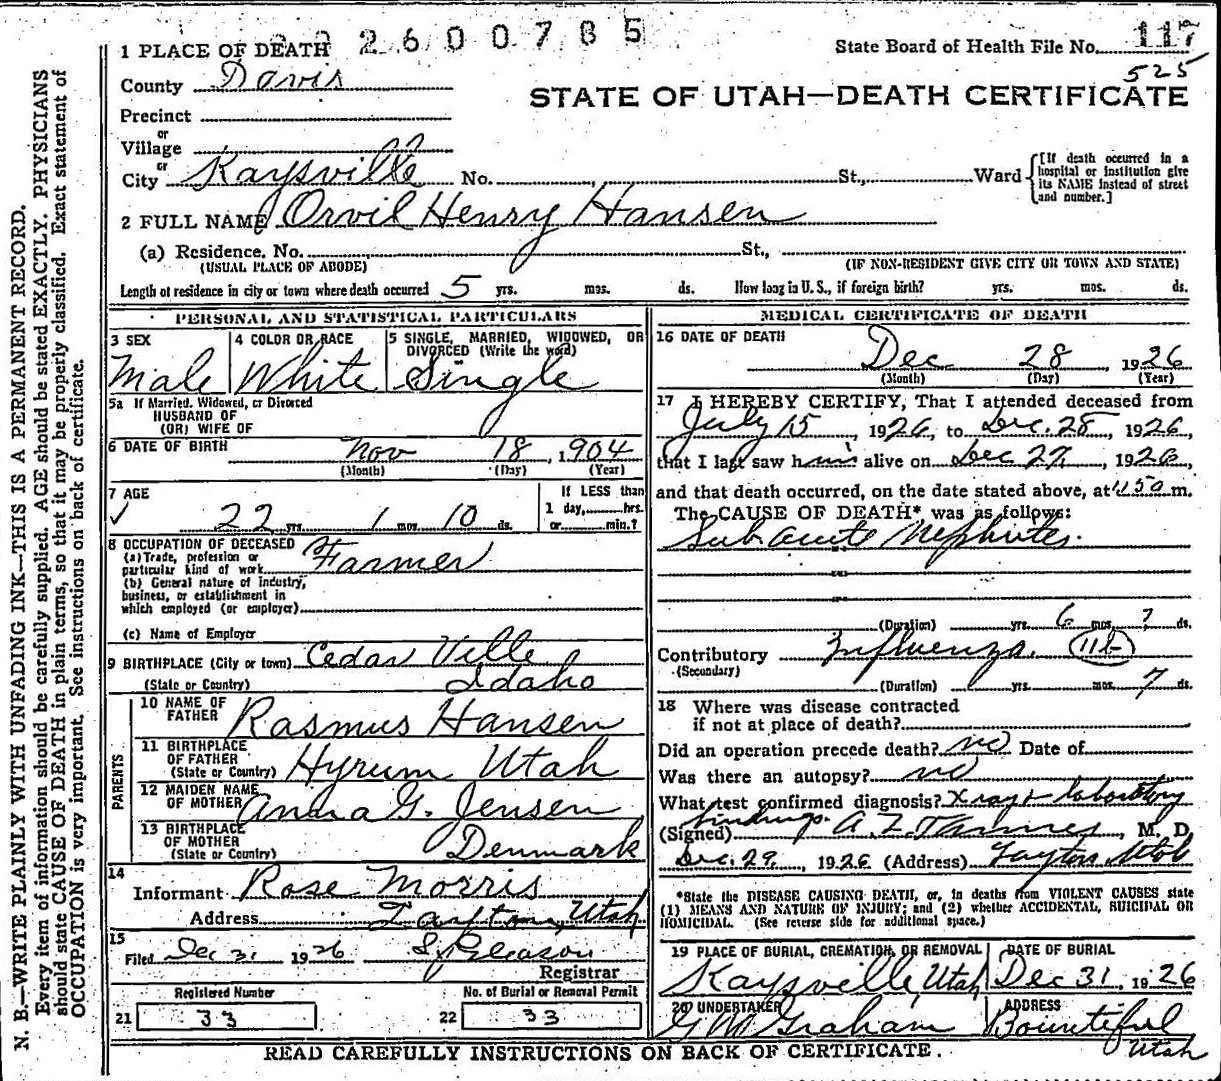 2600785
1 PLACE OF DEATH
State Board of Health File No. 117
525
County Davis
STATE OF UTAH—DEATH CERTIFICATE
Precinct
or
Village
or
City Kaysville No. St., Ward
[If death occurred in a hospital or institution give its NAME instead of street and number.]
2 FULL NAME Orvil Henry Hansen
(a) Residence. No. St.,
(USUAL PLACE OF ABODE) (IF NON-RESIDENT GIVE CITY OR TOWN AND STATE)
Length of residence in city or town where death occurred 5 yrs. mos. ds. How long in U. S., if foreign birth? yrs. mos. ds.
PERSONAL AND STATISTICAL PARTICULARS
3 SEX Male
4 COLOR OR RACE White
5 SINGLE, MARRIED, WIDOWED, OR DIVORCED (Write the word) Single
5a If Married, Widowed, or Divorced
HUSBAND OF
(OR) WIFE OF
6 DATE OF BIRTH Nov 18, 1904
(Month) (Day) (Year)
7 AGE
22 yrs. 1 mos. 10 ds.
If LESS than
1 day, hrs.
or min.?
8 OCCUPATION OF DECEASED
(a) Trade, profession or
particular kind of work Farmer
(b) General nature of industry,
business, or establishment in
which employed (or employer)
(c) Name of Employer
9 BIRTHPLACE (City or town) Cedar Ville
(State or Country) Idaho
PARENTS
10 NAME OF FATHER Rasmus Hansen
11 BIRTHPLACE OF FATHER (State or Country) Hyrum Utah
12 MAIDEN NAME OF MOTHER Anna G. Jensen
13 BIRTHPLACE OF MOTHER (State or Country) Denmark
14
Informant Rose Morris
Address Layton, Utah
15
Filed Dec 31 1926 S. Gleason
Registrar
Registered Number
21 33
No. of Burial or Removal Permit
22 33
MEDICAL CERTIFICATE OF DEATH
16 DATE OF DEATH
Dec 28 1926
(Month) (Day) (Year)
17 I HEREBY CERTIFY, That I attended deceased from
July 15, 1926, to Dec. 28, 1926,
that I last saw him alive on Dec 27, 1926,
and that death occurred, on the date stated above, at 1150 m.
The CAUSE OF DEATH* was as follows:
Sub acute Nephrites.
(Duration) yrs. 6 mos. ? ds.
Contributory Influenza. 11b
(Secondary)
(Duration) yrs. mos. 7 ds.
18 Where was disease contracted
if not at place of death?
Did an operation precede death? no Date of
Was there an autopsy? no
What test confirmed diagnosis? Xray + laboratory
findings.
(Signed) A. Z. Tanner, M. D.
Dec. 29, 1926 (Address) Layton Utah
*State the DISEASE CAUSING DEATH, or, in deaths from VIOLENT CAUSES state
(1) MEANS AND NATURE OF INJURY; and (2) whether ACCIDENTAL, SUICIDAL OR
HOMICIDAL. (See reverse side for additional space.)
19 PLACE OF BURIAL, CREMATION, OR REMOVAL Kaysville, Utah
DATE OF BURIAL Dec 31, 1926
20 UNDERTAKER G M Graham
ADDRESS Bountiful
Utah
READ CAREFULLY INSTRUCTIONS ON BACK OF CERTIFICATE.
N. B.—WRITE PLAINLY WITH UNFADING INK—THIS IS A PERMANENT RECORD.
Every item of information should be carefully supplied. AGE should be stated EXACTLY. PHYSICIANS
should state CAUSE OF DEATH in plain terms, so that it may be properly classified. Exact statement of
OCCUPATION is very important. See instructions on back of certificate.